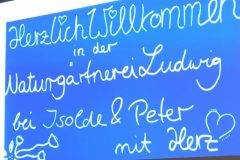 Herzlich Willkommen
in der
Naturgärtnerei Ludwig
bei Isolde & Peter
mit Herz